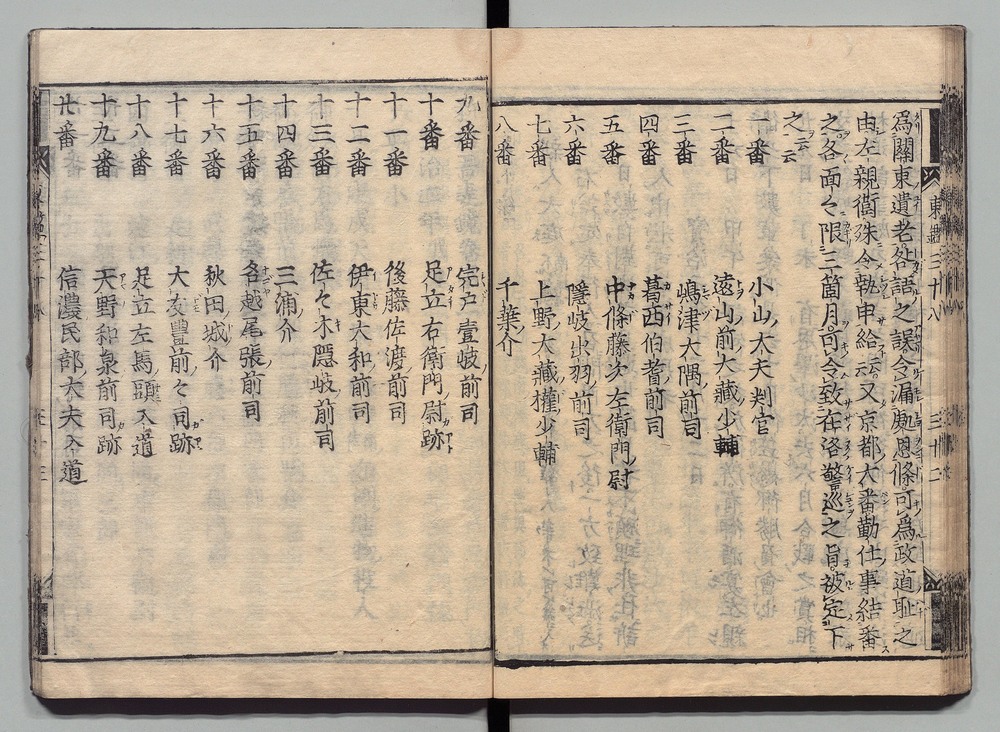 東鑑三十八 三十二
為關東遺老咎語之誤令漏處恩條可為政道耻之
由左親衞殊令執申給云云又京都大番勤仕事結番
之各面々限三箇月可令致在洛警巡之旨被定下
之云云
一番 小山大夫判官
二番 遠山前大藏少輔
三番 嶋津大隅前司
四番 葛西伯耆前司
五番 中條藤次左衛門尉
六番 隱岐出羽前司
七番 上野大藏權少輔
八番 千葉介
九番 宍戸壹岐前司
十番 足立右衛門尉跡
十一番 後藤佐渡前司
十二番 伊東大和前司
十三番 佐々木隱岐前司
十四番 三浦介
十五番 名越尾張前司
十六番 秋田城介
十七番 大友豊前々司跡
十八番 足立左馬頭入道
十九番 天野和泉前司跡
廿番 信濃民部大夫入道